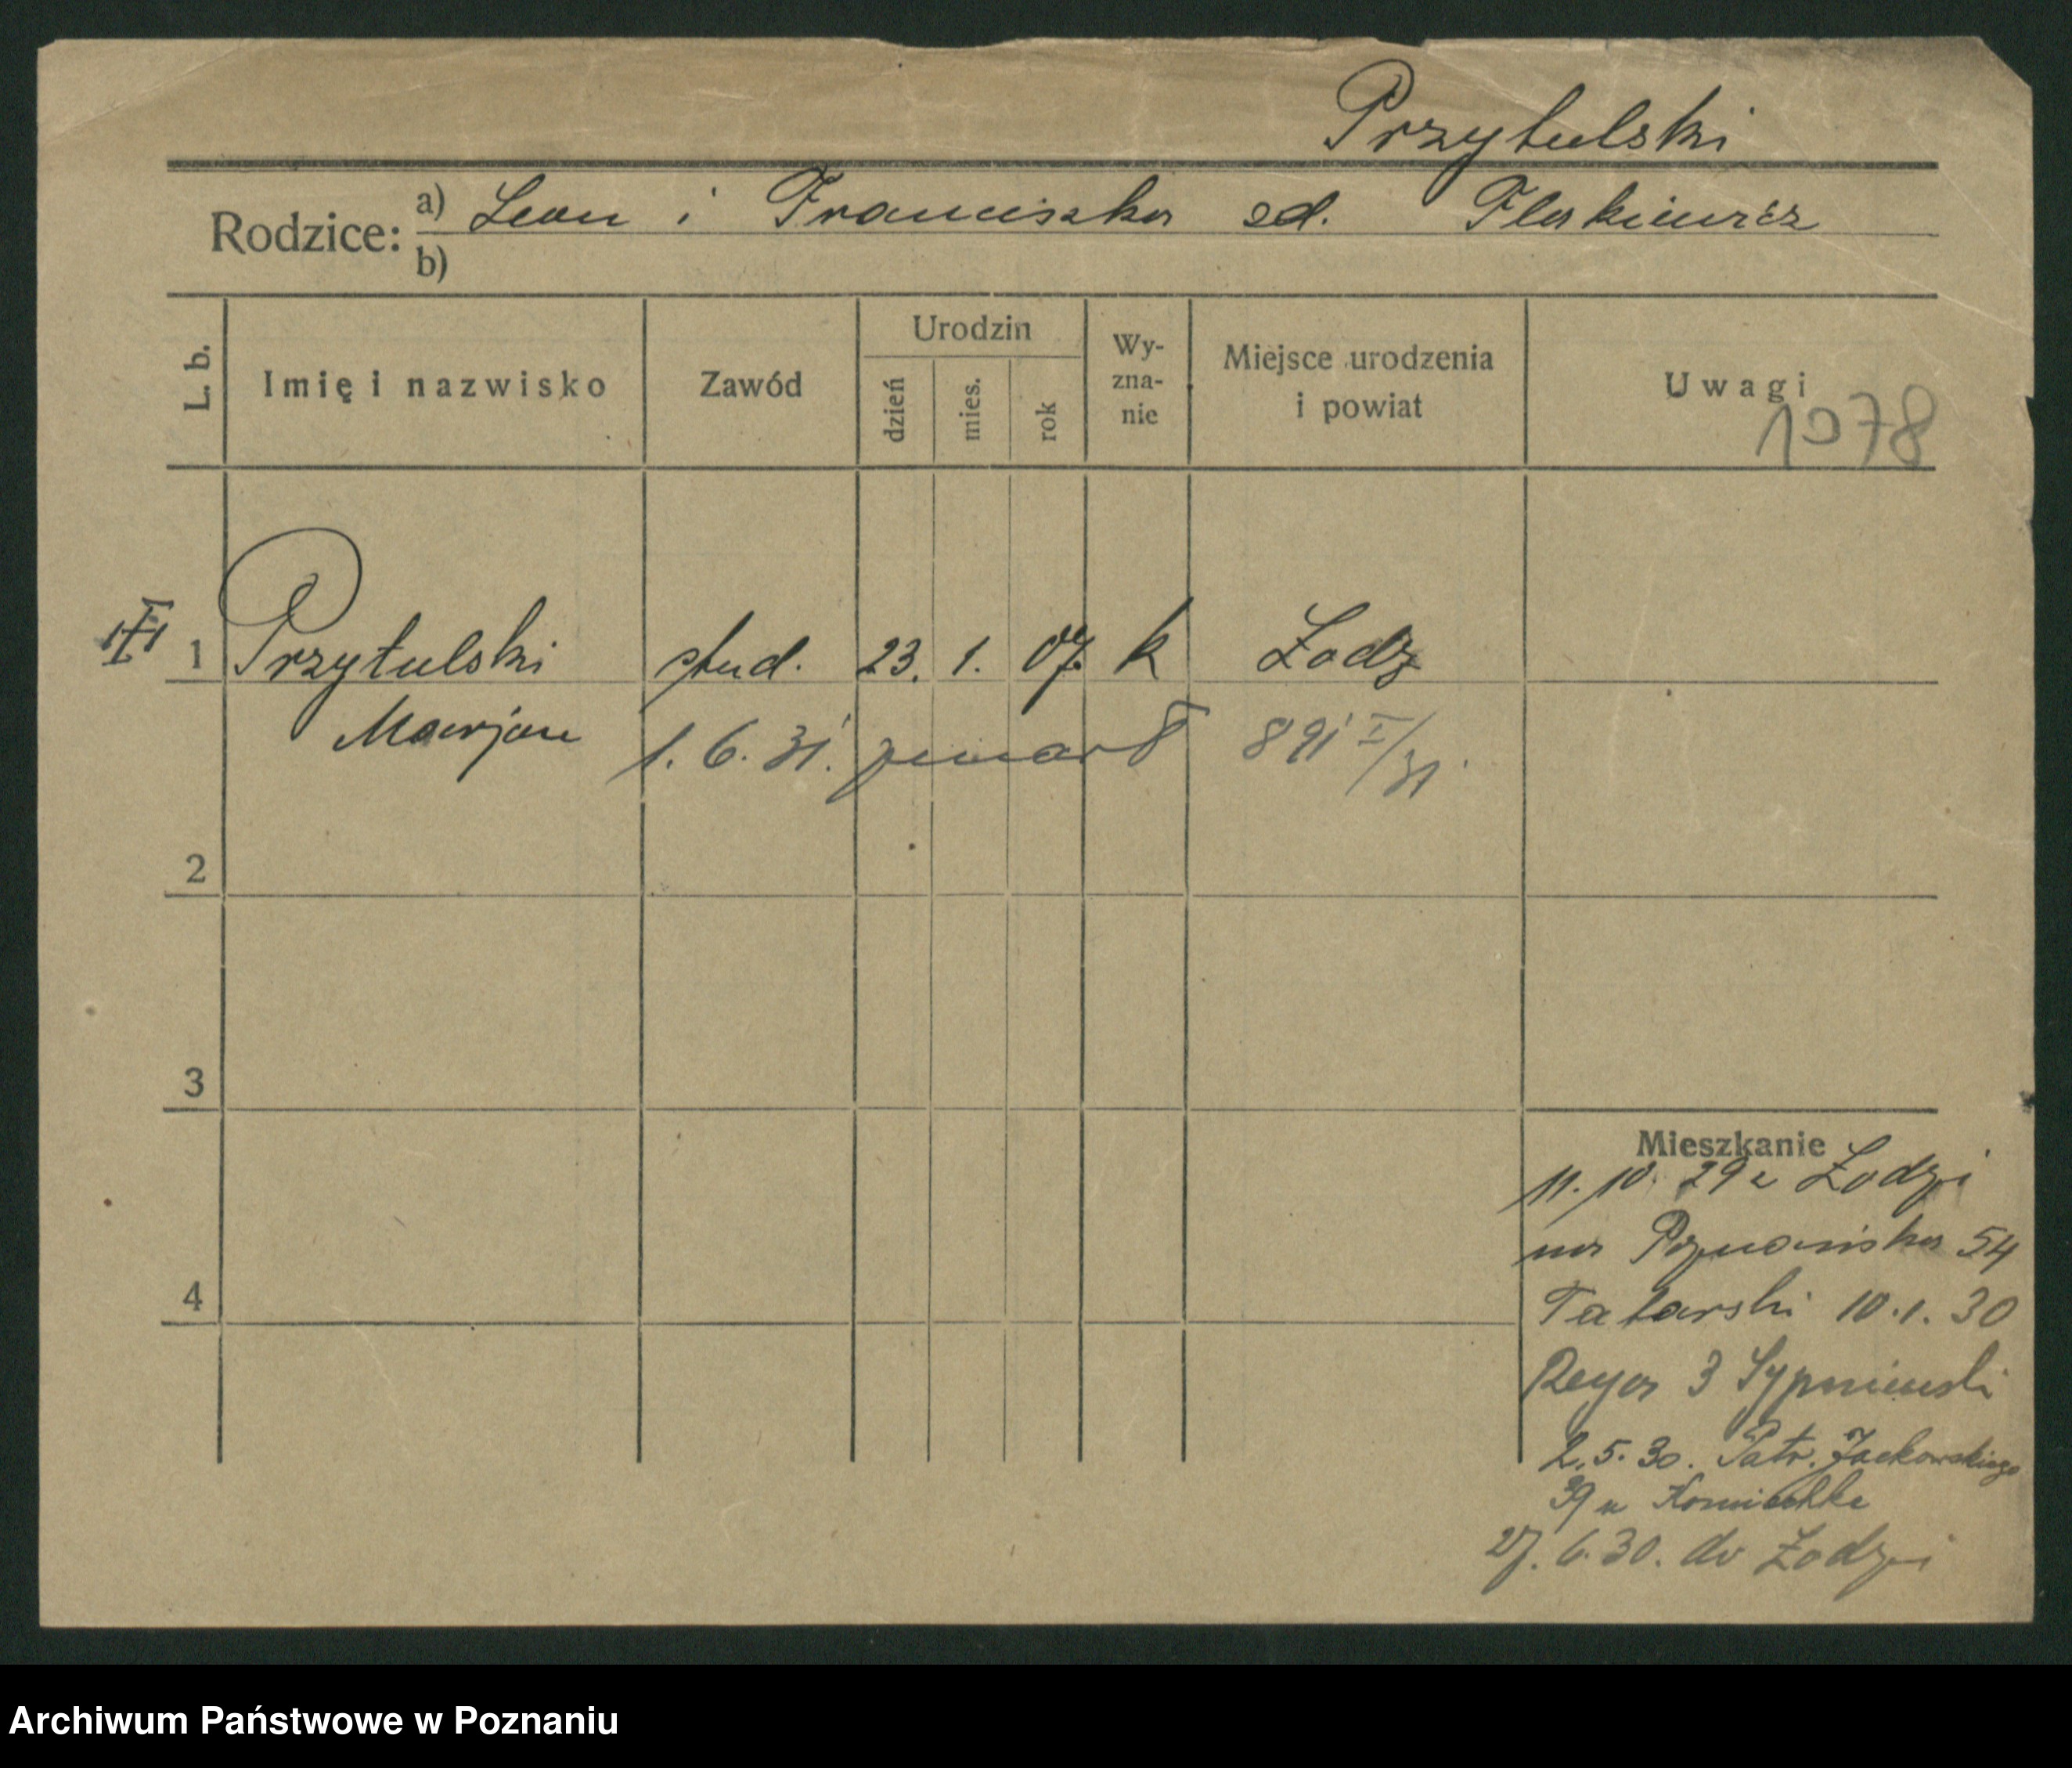 Przytulski
Rodzice: a) Leon i Franciszka zd. Flaskiewicz
b)
L. b. Imię i nazwisko Zawód Urodzin dzień mies. rok Wy-zna-nie Miejsce urodzenia i powiat Uwagi
1078
1 Przytulski stud. 23. 1. 07. k Łodz
Marjan 1. 6. 31. zmarł 891 I/31.
2
3
4
Mieszkanie
11. 10. 29 z Łodzi
na Poznańska 54
Tatarski 10.1.30
Reya 3 Sypniewski
2.5.30. Patr. Jackowskiego
39 u
27.6.30. do Łodzi
Archiwum Państwowe w Poznaniu